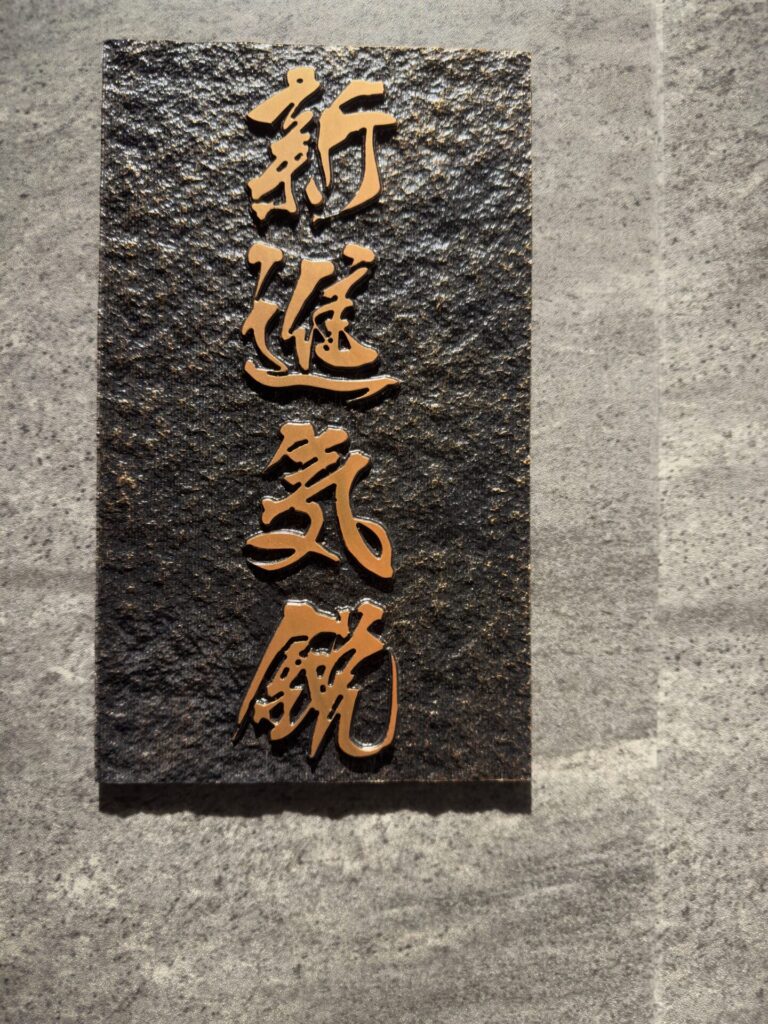 新進気鋭